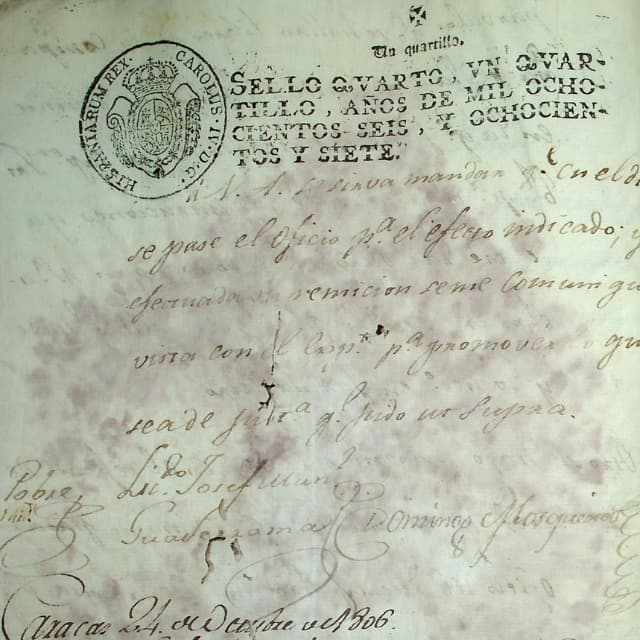 Un quartillo.
HISPANIARUM REX. CAROLUS IV. D. G.
SELLO QVARTO, VN QVAR-
TILLO, AÑOS DE MIL OCHO-
CIENTOS SEIS, Y OCHOCIEN-
TOS Y SIETE.
A V. A. sirva mandar qe. en el d
se pase el oficio pa. el efecto indicado; y
efectuada su remicion se me comunique
vista con el Expte. pa. promover lo qu
sea de justa. qe. pido ut supra.
Pobre Lizdo. Josef
Domingo
Caracas 24 de Diciembre de 1806.